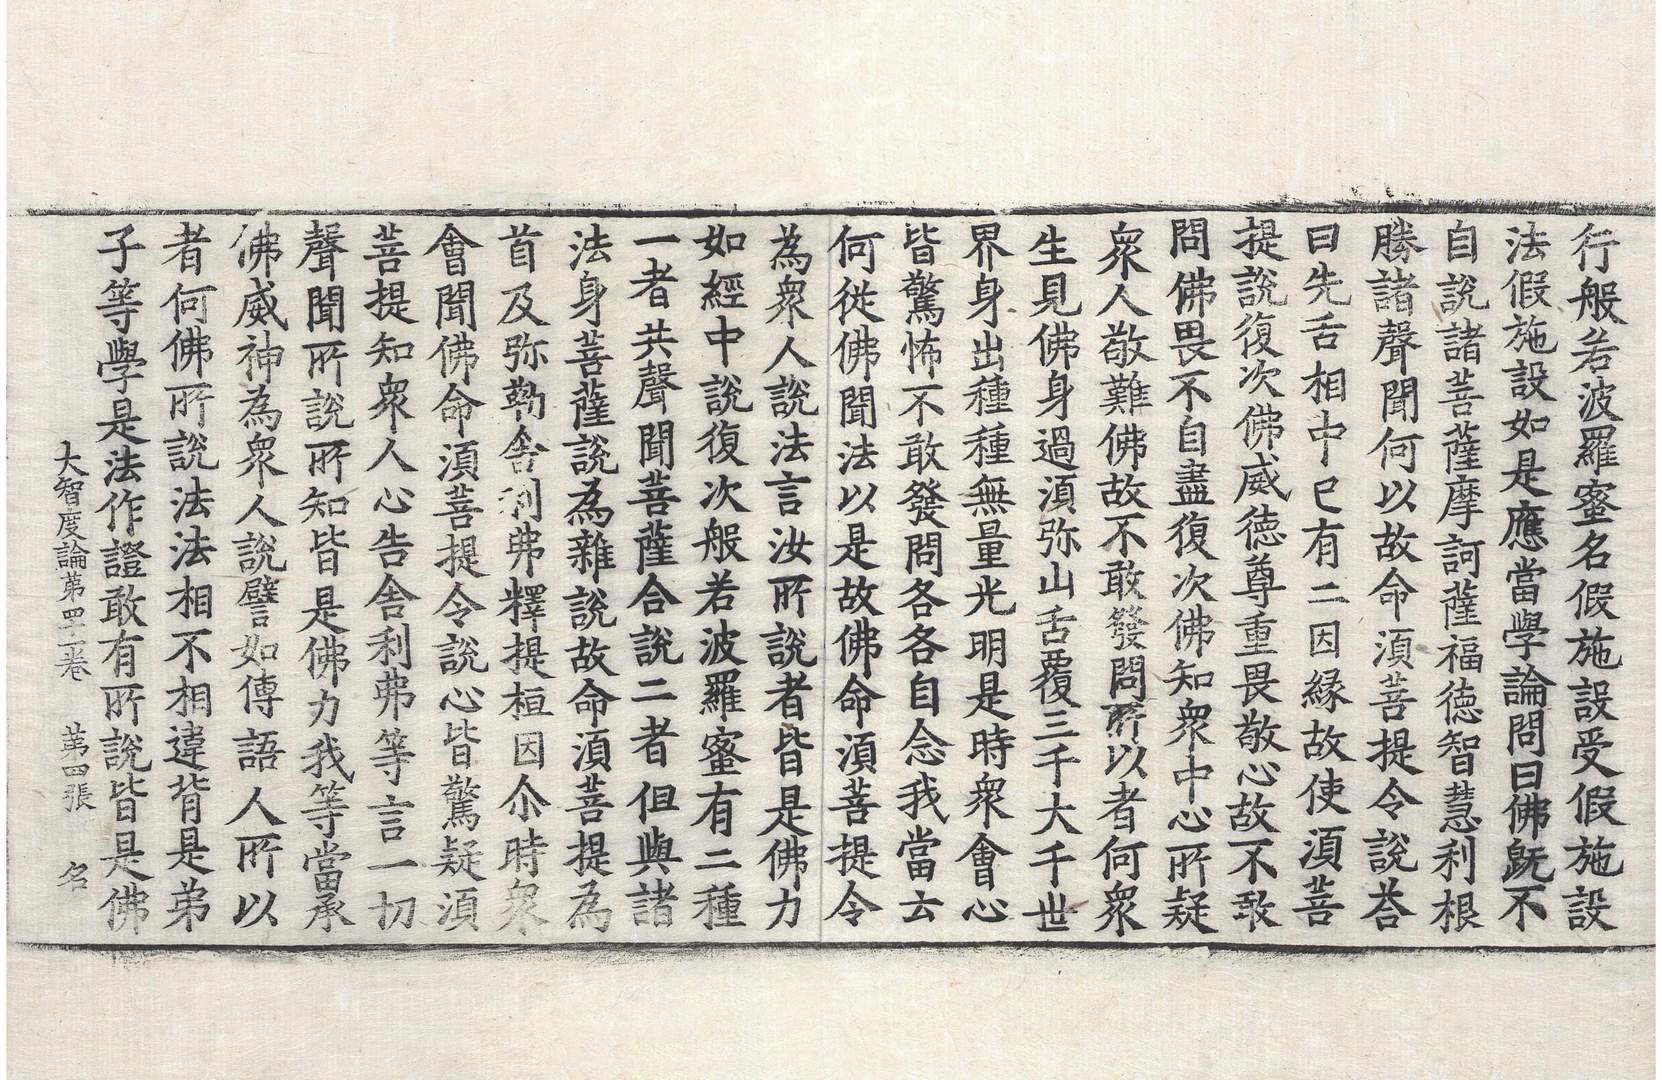 行般若波羅蜜名假施設受假施設
法假施設如是應當學論問曰佛旣不
自說諸菩薩摩訶薩福德智慧利根
勝諸聲聞何以故命湏菩提令說荅
曰先舌相中已有二因緣故使湏菩
提說復次佛威德尊重畏敬心故不敢
問佛畏不自盡復次佛知衆中心所疑
衆人敬難佛故不敢發問所以者何衆
生見佛身過湏弥山舌覆三千大千世
界身出種種無量光明是時衆會心
皆驚怖不敢發問各各自念我當云
何從佛聞法以是故佛命湏菩提令
為衆人說法言汝所說者皆是佛力
如經中說復次般若波羅蜜有二種
一者共聲聞菩薩合說二者但與諸
法身菩薩說為雜說故命湏菩提為
首及弥勒舍利弗釋提桓因尒時衆
會聞佛命湏菩提令說心皆驚疑湏
菩提知衆人心告舍利弗等言一切
聲聞所說所知皆是佛力我等當承
佛威神為衆人說譬如傳語人所以
者何佛所說法法相不相違背是弟
子等學是法作證敢有所說皆是佛
大智度論第四十一卷 第四張 名